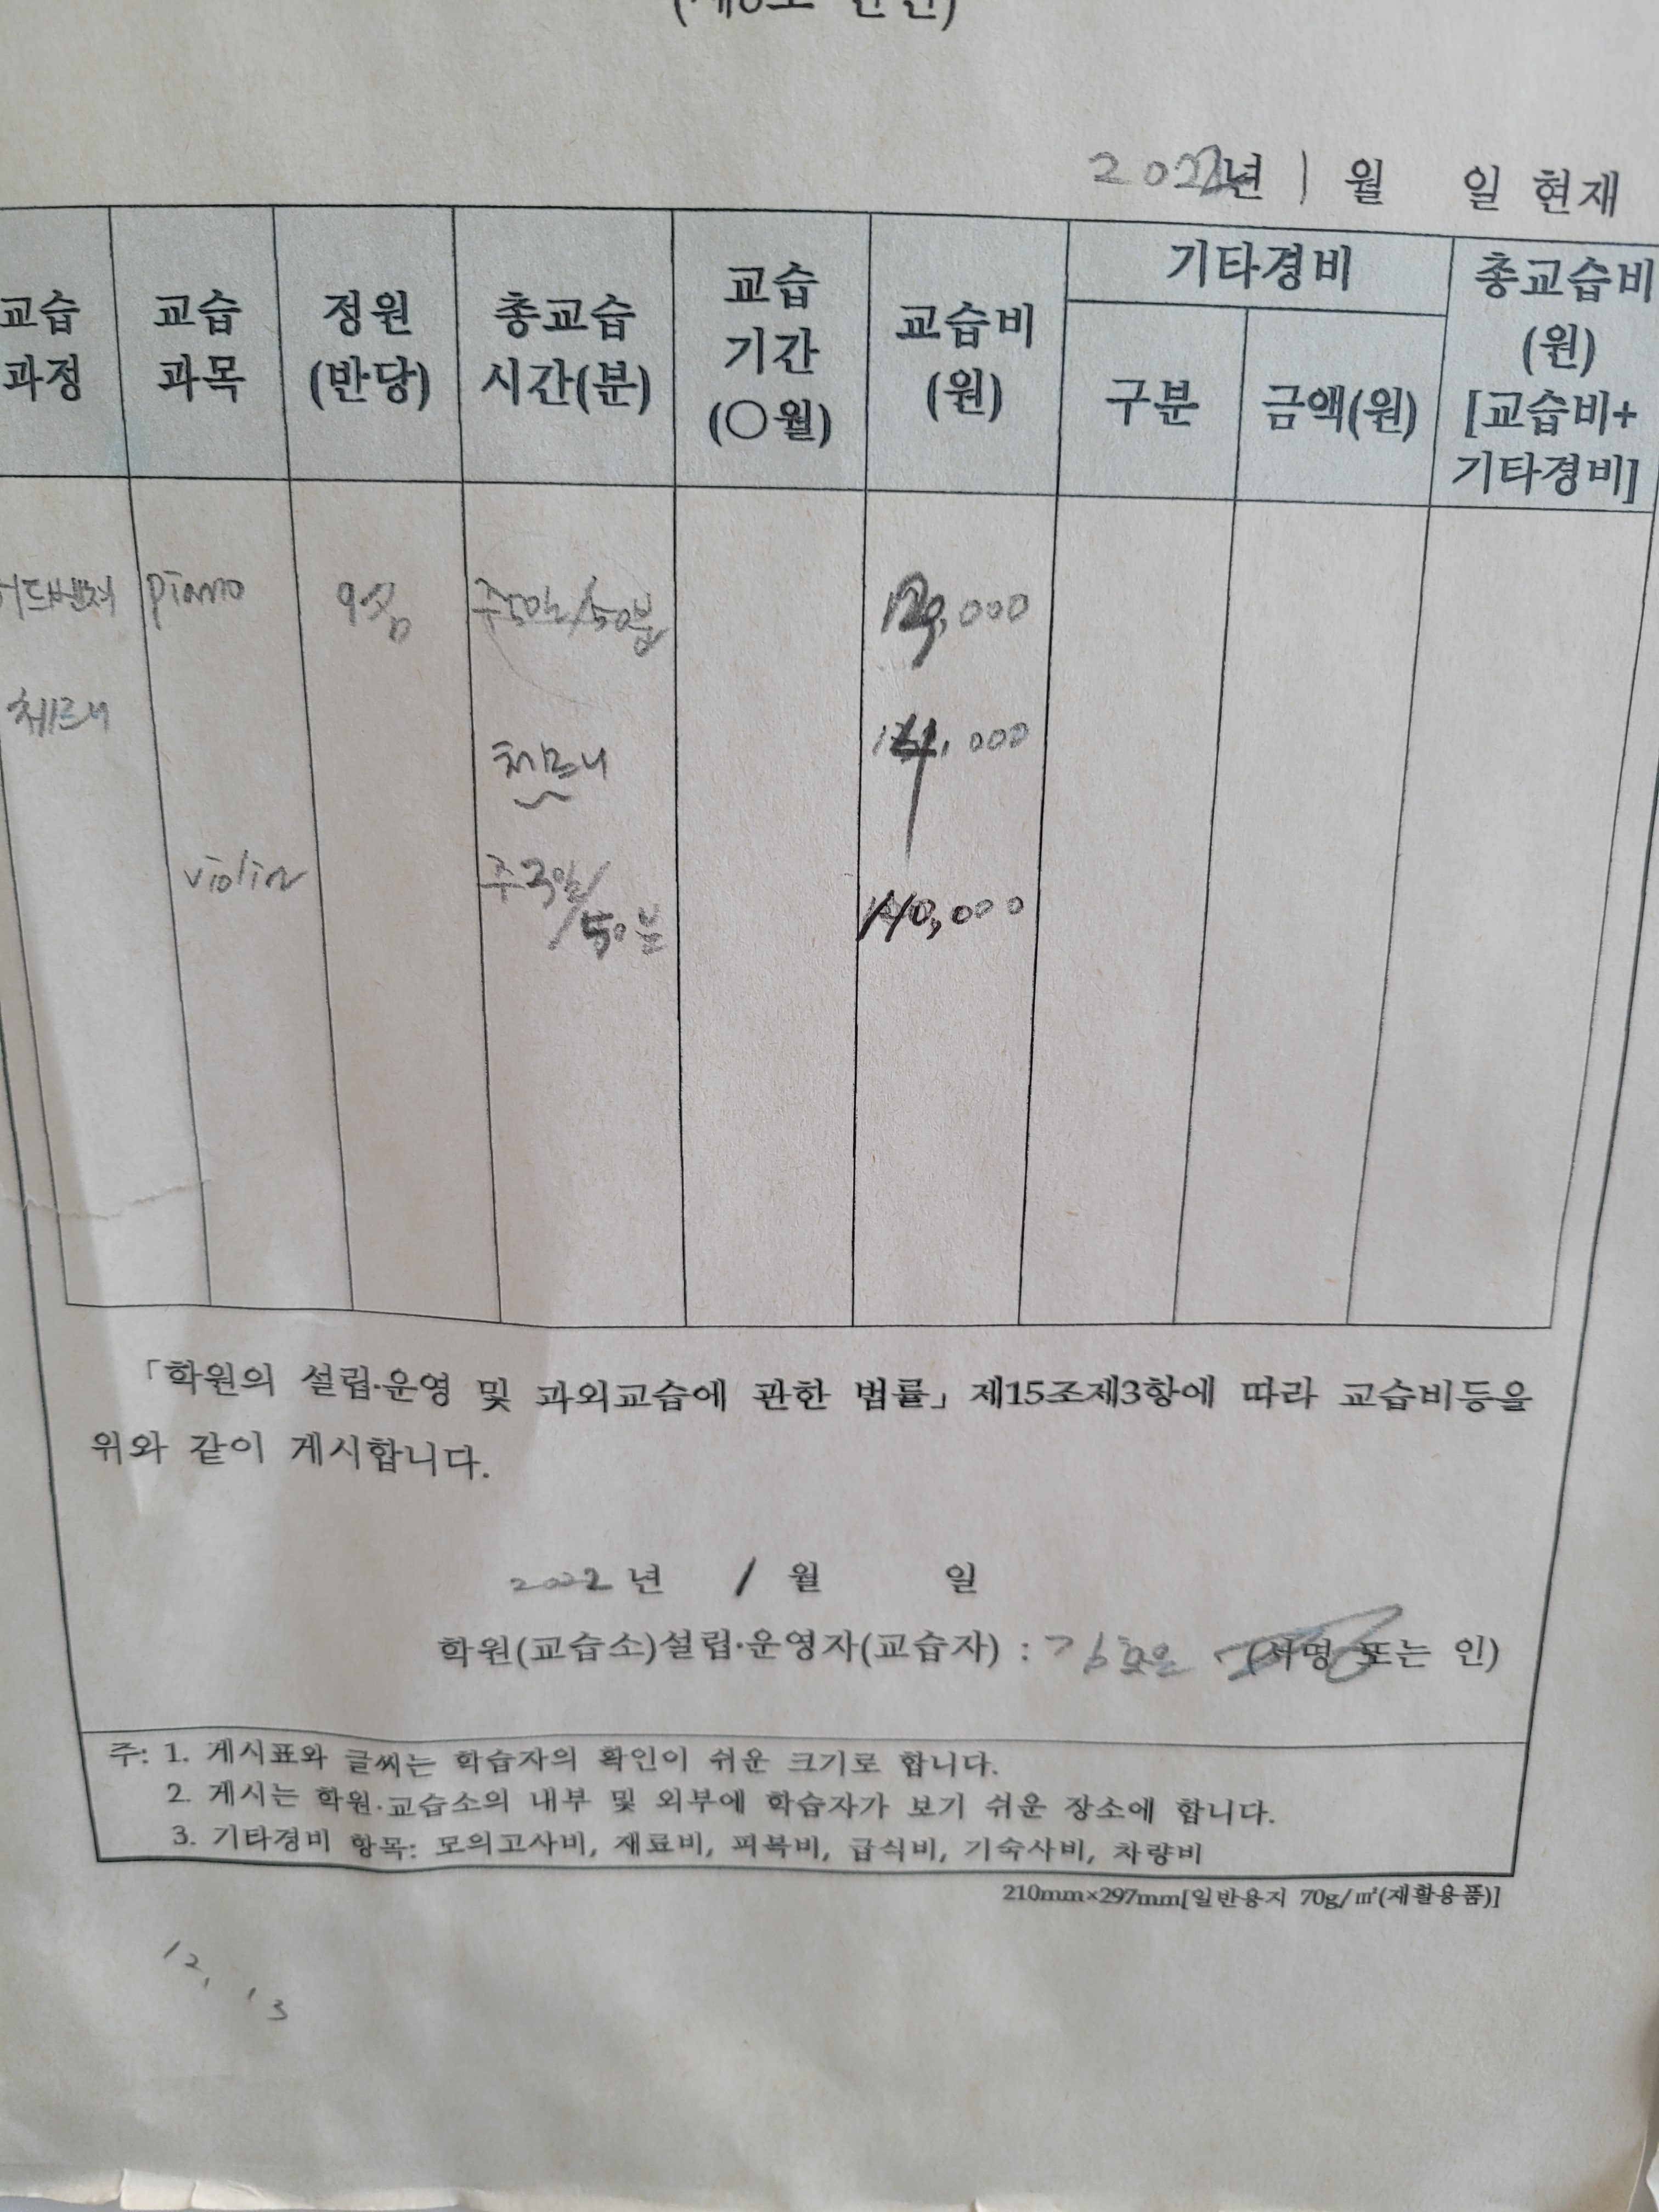 2022년 1 월 일 현재
교습 과정
교습 과목
정원 (반당)
총교습 시간(분)
교습 기간 (○월)
교습비 (원)
기타경비
구분
금액(원)
총교습비 (원) [교습비+ 기타경비]
piano 9명 주5일/50분
체르니
체르니
violin 주3일/ /50분 140,000
「학원의 설립·운영 및 과외교습에 관한 법률」제15조제3항에 따라 교습비등을
위와 같이 게시합니다.
2022 년 / 월 일
학원(교습소)설립·운영자(교습자) : (서명 또는 인)
주: 1. 게시표와 글씨는 학습자의 확인이 쉬운 크기로 합니다.
2. 게시는 학원·교습소의 내부 및 외부에 학습자가 보기 쉬운 장소에 합니다.
3. 기타경비 항목: 모의고사비, 재료비, 피복비, 급식비, 기숙사비, 차량비
210mm×297mm[일반용지 70g/㎡(재활용품)]
12, 13